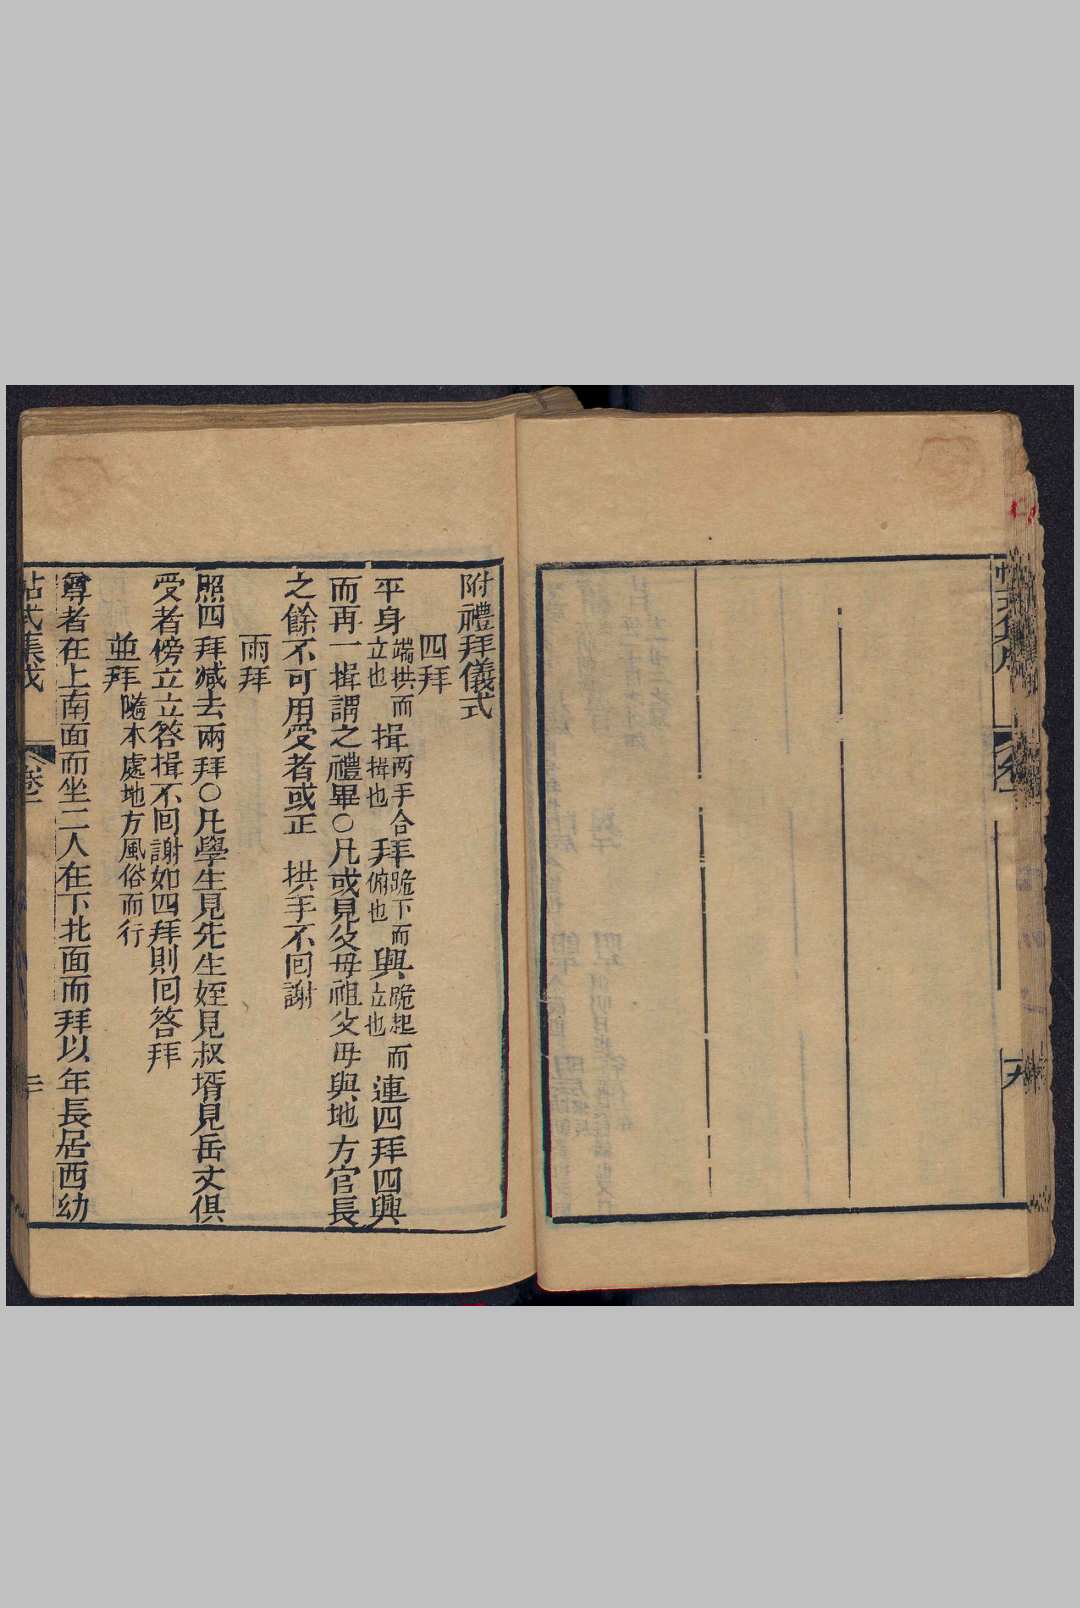 附禮拜儀式
四拜
平身端拱而立也揖两手合揖也拜跪下而俯也興跪起而立也連四拜四興
而再一揖謂之禮畢○凡或見父母祖父母與地方官長
之餘不可用受者或正 拱手不回謝
兩拜
照四拜減去兩拜○凡學生見先生姪見叔壻見岳丈俱
受者傍立立答揖不回謝如四拜則回答拜
並拜隨本處地方風俗而行
尊者在上南面而坐二人在下北面而拜以年長居西幼
帖式集成 卷二